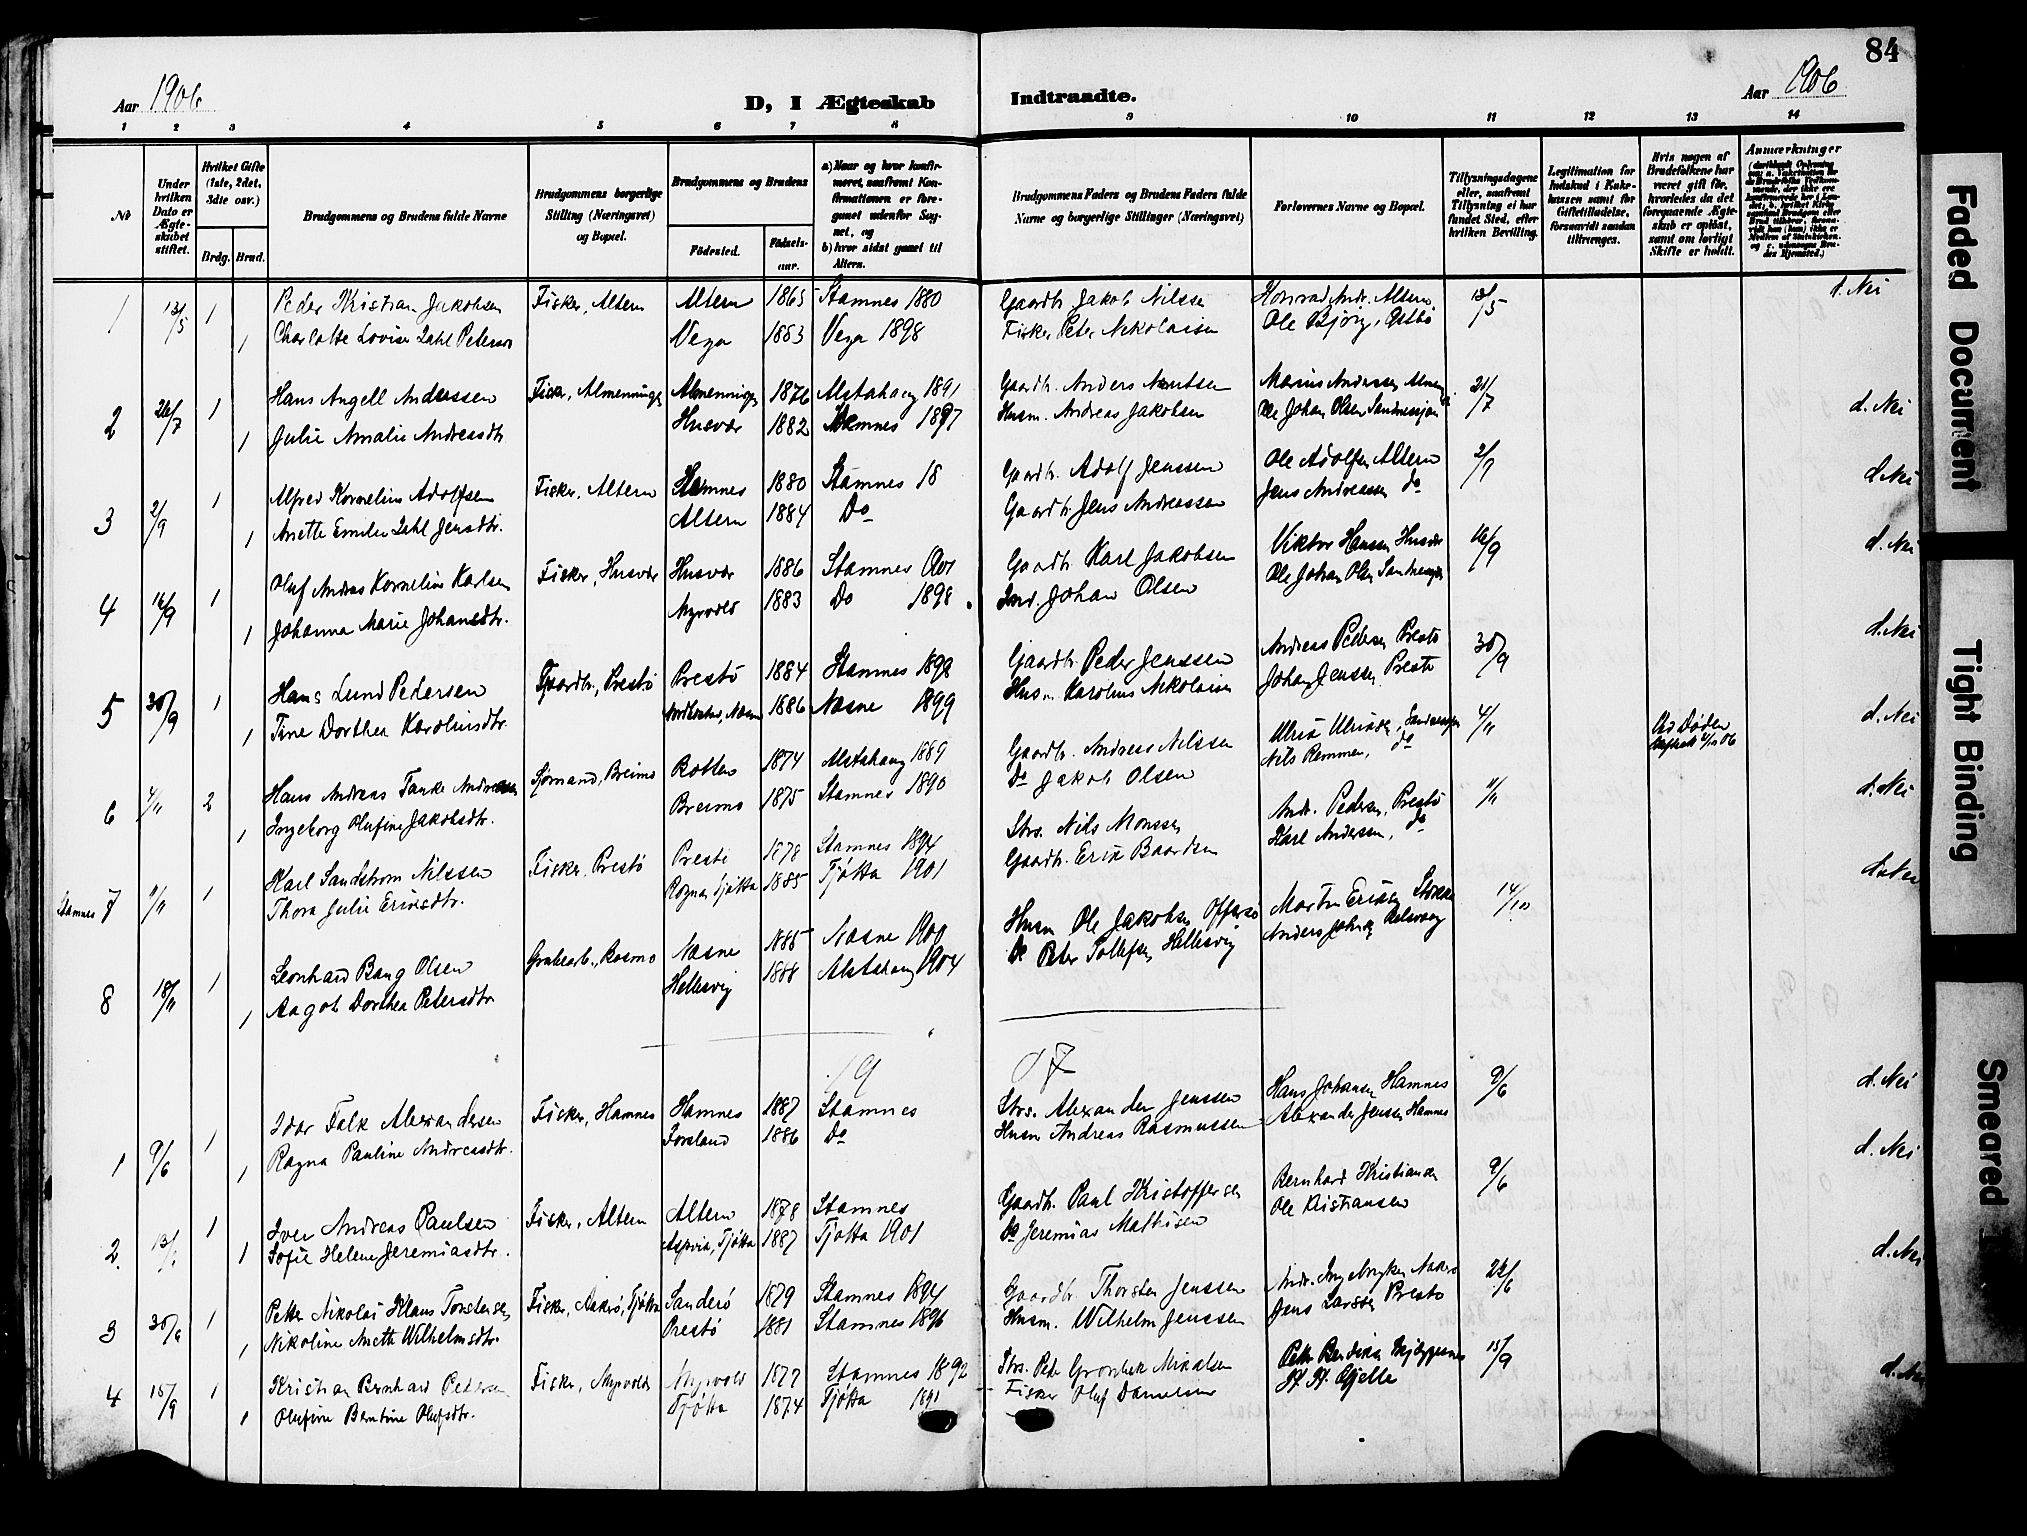 84
Aar 1906
D, I Ægteskab Indtraadte.
Aar 1906
1 2 3 4 5 6 7 8 9 10 11 12 13 14
No
Under hvilken Dato er Ægteskabet stiftet.
Hvilket Gifte (1ste, 2det, 3die osv.)
Brdg. Brud.
Brudgommens og Brudens fulde Navne
Brudgommens borgerlige Stilling (Næringsvei) og Bopæl.
Brudgommens og Brudens
Fødested. Fødselsaar.
a) Naar og hvor konfirmeret, saafremt Konfirmationen er foregaaet udenfor Sognet, og
b) hvor sidst gaaet til Alters.
Brudgommens Faders og Brudens Faders fulde Navne og borgerlige Stillinger (Næringsvei)
Forlovernes Navne og Bopæl.
Tillysningsdagene eller, saafremt Tillysning ei har fundet Sted, efter hvilken Bevilling.
Legitimation for Indskud i Enkekassen samt for Giftetilladelse, forsaavidt saadan tiltrænges.
Hvis nogen af Brudefolkene har været gift før, hvorledes da det foregaaende Ægteskab er opløst, samt om lovligt Skifte er holdt.
Anmærkninger
1 13/5 1 Peder Kristian Jakobsen Fisker, Altern Altern 1865 Stamnes 1880 Gaardbr. Jakob Nilssen Konrad Andr. Altern 13/5 d. Nei
1 Charlotte Lovise Dahl Petersen Vega 1883 Vega 1898 Fisker Peter Nikolaisen Ole Bjørig, Østbø
2 26/7 1 Hans Angell Anderssen Fisker, Almenningen Almenningen 1876 Alstahaug 1891 Gaardbr. Anders Knutsen Marius Andersen 21/7 d. Nei
1 Julie Amalie Andreasdtr. Husvær 1882 Stamnes 1897 Husm. Andreas Jakobsen Ole Johan Olsen Sandnessjøen
3 2/9 1 Alfred Kornelius Adolfsen Fisker, Altern Hamnes 1880 Stamnes 18 Gaardbr. Adolf Jenssen Ole Adolfsen Altern 2/9 d. Nei
1 Anette Emilie Dahl Jensdtr. Altern 1884 Do Gaardbr. Jens Andreassen Jens Andreassen do
4 16/9 1 Oluf Andreas Kornelius Karlsen Fisker, Husvær Husvær 1886 Stamnes 1901 Gaardbr. Karl Jakobsen Viktor Hansen Husvær 16/9 d. Nei
1 Johanna Marie Johansdtr. Myrvold 1883 Do 1898 Ind. Johan Olsen Ole Johan Olsen Sandnessjøen
5 30/9 1 Hans Lund Pedersen Gaardbr., Prestø Prestø 1884 Stamnes 1898 Gaardbr. Peder Jenssen Andreas Pedersen Prestø 30/9 d. Nei
1 Tine Dorthea Karolinsdtr. 1886 Næsne 1899 Husm. Karolius Nikolaisen Johan Jenssen Prestø
6 4/11 2 Hans Andreas Tanke Andreassen Sjømand, Breimo Botten 1874 Alstahaug 1889 Gaardbr. Andreas Nilssen Ulrik Ulriksen, Sandnessjøen 4/11 Ved Døden d. Nei
1 Ingeborg Olufine Jakobsdtr. Breimo 1875 Stamnes 1890 Do Jakob Olsen Nils Remmen, do
Stamnes 7 11/11 1 Karl Sandstrøm Nilssen Fisker, Prestø Prestø 1878 Stamnes 1894 Strs. Nils Monssen Andr. Pedersen, Prestø 11/11 d. Nei
Thora Julie Eriksdtr. Rogna, Tjøtta 1885 Tjøtta 1901 Gaardbr. Erik Baardsen Karl Andersen, do
8 18/11 1 Leonhard Bang Olsen Grubearb., Rosmo Næsne 1885 Næsne 1900 Husm Ole Jakobsen Offersø Martin Eriksen 14/10 d. Nei
1 Aagot Dorthea Petersdtr. Hellesvig 1888 Alstahaug 1904 Peter Tollefsen Hellesvig Anders Johnsen
19 07
1 9/6 1 Idar Falk Alexandersen Fisker, Hamnes Hamnes 1887 Stamnes Strs. Alexander Jenssen Hans Johansen Hamnes 9/6 d. Nei
1 Ragna Pauline Andreasdtr. Forsland 1886 Do Husm Andreas Rasmussen Alexander Jenssen Hamnes
2 13/ 1 Iver Andreas Paulsen Fisker, Altern Altern 1878 Stamnes Gaardbr. Paul Kristoffersen Bernhard Kristiansen 9/6 d. Nei
1 Sofie Helene Jeremiasdtr. Aspvik, Tjøtta 1887 Tjøtta 1901 Do Jeremias Mathisen Ole Kristiansen
3 30/6 1 Peter Nikolai Klaus Torstensen Fisker, Aakrø, Tjøtta Sanderø 1879 Stamnes 1894 Gaardbr. Thorsten Jenssen Andr. Ingebrigtsen Aakrø 22/6 d. Nei
1 Nikoline Anette Wilhelmsdtr. Prestø 1881 Stamnes 1896 Husm. Wilhelm Jenssen Jens Larsen Prestø
4 15/9 1 Kristian Bernhard Pedersen Fisker, Myrvold Myrvold 1877 Stamnes 1892 Strs. Peder Grønbek Mikalsen 15/9 d. Nei
1 Olufine Berntine Olufsdtr. Tjøtta 1874 Tjøtta 1891 Fisker Oluf Danielsen Gjelle
Faded Document
Tight Binding
Smeared